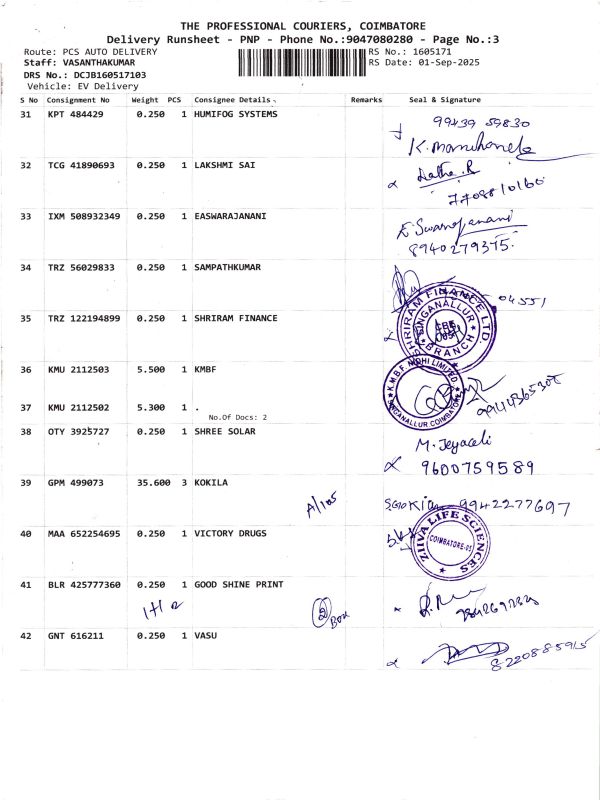 THE PROFESSIONAL COURIERS, COIMBATORE
Delivery Runsheet - PNP - Phone No.:9047080280 - Page No.:3
Route: PCS AUTO DELIVERY RS No.: 1605171
Staff: VASANTHAKUMAR RS Date: 01-Sep-2025
DRS No.: DCJB160517103
Vehicle: EV Delivery
S No Consignment No Weight PCS Consignee Details Remarks Seal & Signature
31 KPT 484429 0.250 1 HUMIFOG SYSTEMS
99439 59830
32 TCG 41890693 0.250 1 LAKSHMI SAI
Latha.R
33 IXM 508932349 0.250 1 EASWARAJANANI
8940279375.
34 TRZ 56029833 0.250 1 SAMPATHKUMAR
04551
35 TRZ 122194899 0.250 1 SHRIRAM FINANCE
SHRIRAM FINANCE LTD.
SINGANALLUR
BRANCH
36 KMU 2112503 5.500 1 KMBF
K.M.B.F. NIDHI LIMITED
SINGANALLUR COIMBATORE
37 KMU 2112502 5.300 1 .
No.Of Docs: 2
38 OTY 3925727 0.250 1 SHREE SOLAR
9600759589
39 GPM 499073 35.600 3 KOKILA
9942277697
40 MAA 652254695 0.250 1 VICTORY DRUGS
ZIIVA LIFE SCIENCES
COIMBATORE-05
41 BLR 425777360 0.250 1 GOOD SHINE PRINT
1+1 2
2 Box
42 GNT 616211 0.250 1 VASU
8220885915